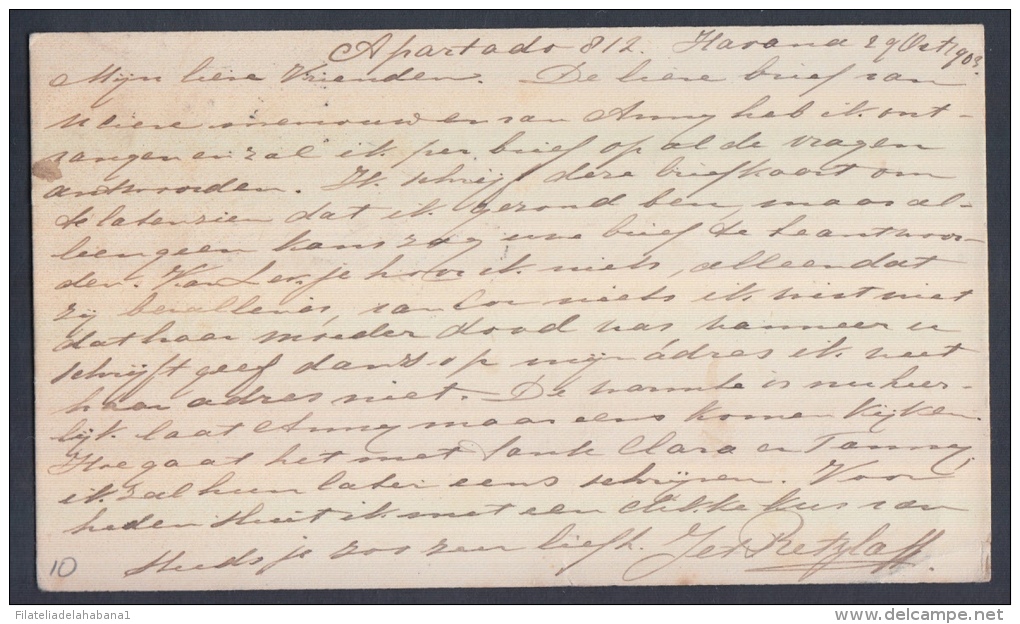 Apartado 812. Havana 29 Oct 1903.
Mijn lieve Vrienden. De lieve brief van
U lieve mevrouw en van Anny heb ik ont-
vangen en zal ik per brief op al de vragen
antwoorden. Ik schrijf deze briefkaart om
te laten zien dat ik gezond ben, maar al-
leen geen kans zag uw brief te beantwoor-
den. Van hoor ik niets, alleen dat
zij is, van Cor niets ik wist niet
dat haar moeder dood was wanneer u
schrijft geef op mijn adres ik weet
haar adres niet. De warmte is nu heer-
lijk laat Anny maar eens komen kijken.
Hoe gaat het met tante Clara en Fanny,
ik zal hun later eens schrijven. Voor
heden sluit ik met een dikke kus van
je zoo zeer liefh. Jet Retzlaff.
10
Filateliadelahabana1
www.delcampe.net